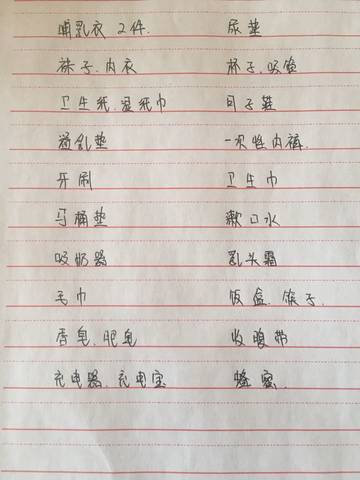 哺乳衣 2件. 尿垫
袜子、内衣 杯子、吸管
卫生纸、湿纸巾 月子鞋
溢乳垫 一次性内裤.
牙刷 卫生巾
马桶垫 漱口水
吸奶器 乳头霜
毛巾 饭盒、筷子、
香皂、肥皂 收腹带
充电器、充电宝 蜂蜜、